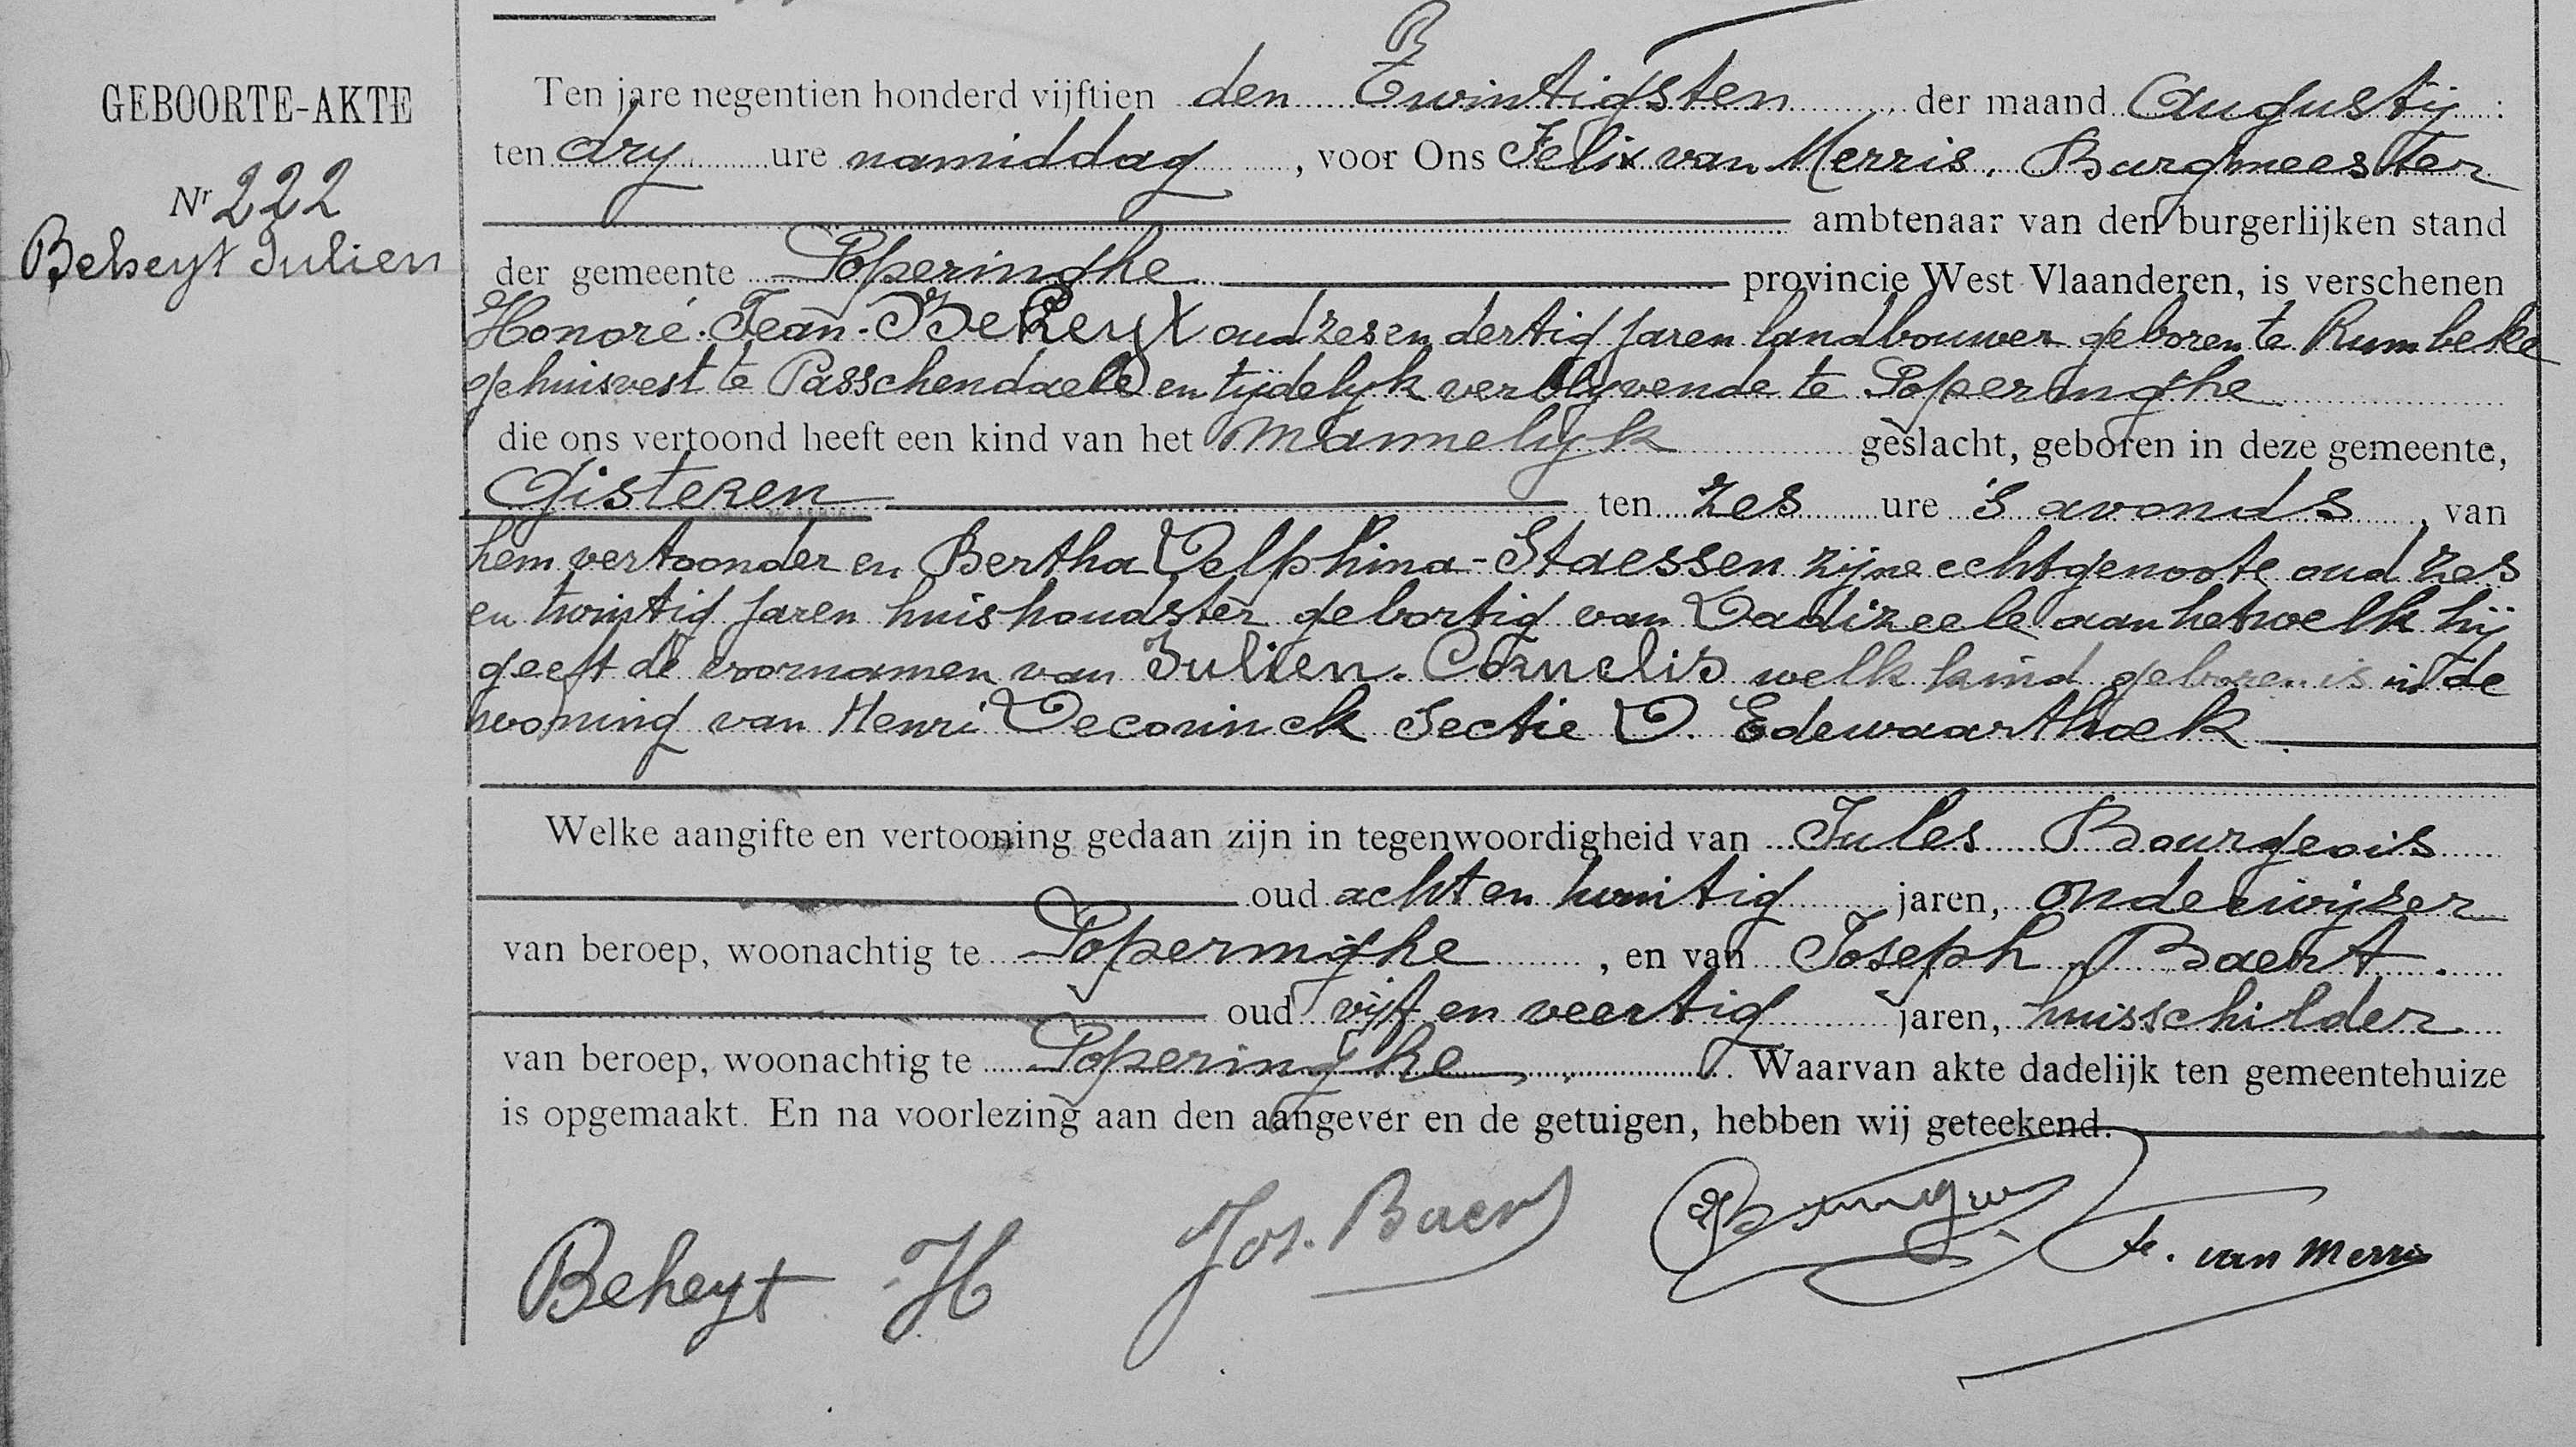 GEBOORTE-AKTE
Nr 222
Beheyt Julien
Ten jare negentien honderd vijftien den Twintigsten der maand Augusty :
ten dry ure namiddag , voor Ons Felix van Merris, Burgmeester
ambtenaar van den burgerlijken stand
der gemeente Poperinghe provincie West Vlaanderen, is verschenen
Honoré-Jean-Beheyt oud zes en dertig jaren landbouwer geboren te Rumbeke
gehuisvest te Passchendaele en tijdelyk verblyvende te Poperinghe
die ons vertoond heeft een kind van het mannelyk geslacht, geboren in deze gemeente,
Gisteren ten zes ure 's avonds , van
hem vertoonder en Bertha Delphina-Staessen zijne echtgenoote oud zes
en twintig jaren huishoudster gebortig van Dadizeele aan hetwelk hij
geeft de voornamen van Julien. Cornelis welk kind geboren is in de
woning van Henri Deconinck Sectie D. Edewaarthoek
Welke aangifte en vertooning gedaan zijn in tegenwoordigheid van Jules Bourgeois
oud acht en twintig jaren, onderwijzer
van beroep, woonachtig te Poperinghe , en van Joseph Baert.
oud vijf en veertig jaren, huisschilder
van beroep, woonachtig te Poperinghe . Waarvan akte dadelijk ten gemeentehuize
is opgemaakt. En na voorlezing aan den aangever en de getuigen, hebben wij geteekend.
Beheyt H Jos. Baert F. van Merris